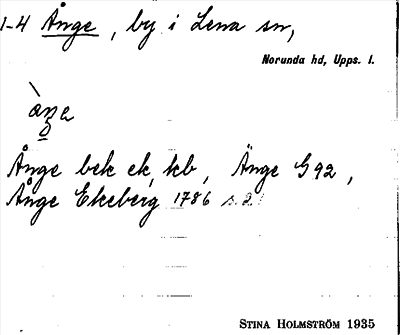 1-4 Ånge, by i Lena sn,
Norunda hd, Upps. l.
Ånge bek ek, kb, Änge G 92,
Ånge Ekeberg 1786 s. 2.
STINA HOLMSTRÖM 1935